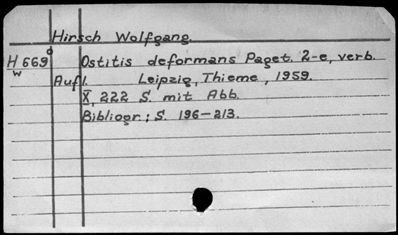 Hirsch Wolfgang.
H 669 Ostitis deformans Paget. 2-e, verb.
w Aufl. Leipzig, Thieme, 1959.
X, 222 S. mit Abb.
Bibliogr: S. 196-213.